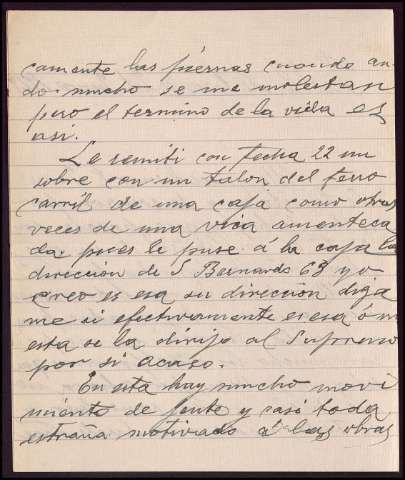 camente las piernas cuando an-
do mucho se me molestan
pero el termino de la vida es
asi.
Le remiti con fecha 22 un
sobre con un talon del ferro
carril de una caja como otras
veces de una rica amanteca
da. pues le puse á la caja la
dirección de S Bernardo 68 y o
creo es esa su dirección diga
me si efectivamente es esa o no
esta se la dirijo al Supremo
por si acaso.
En esta hay mucho movi
miento de jente y casi toda
estraña motivado á las obras